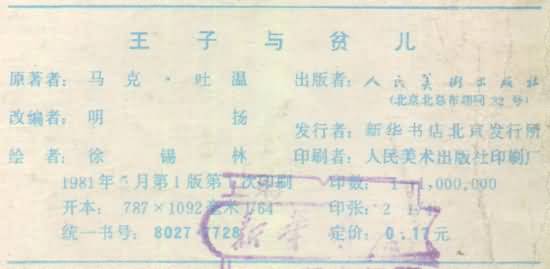 王子与贫儿
原著者：马克·吐温
改编者：明扬
绘者：徐锡林
1981年 月第1版第 次印刷
开本：787×1092毫米1/64
统一书号：8027·7728
出版者：人民美術出版社
(北京北总布胡同32号)
发行者：新华书店北京发行所
印刷者：人民美术出版社印刷厂
印数： ,000,000
印张：2
定价：0.17元
新华